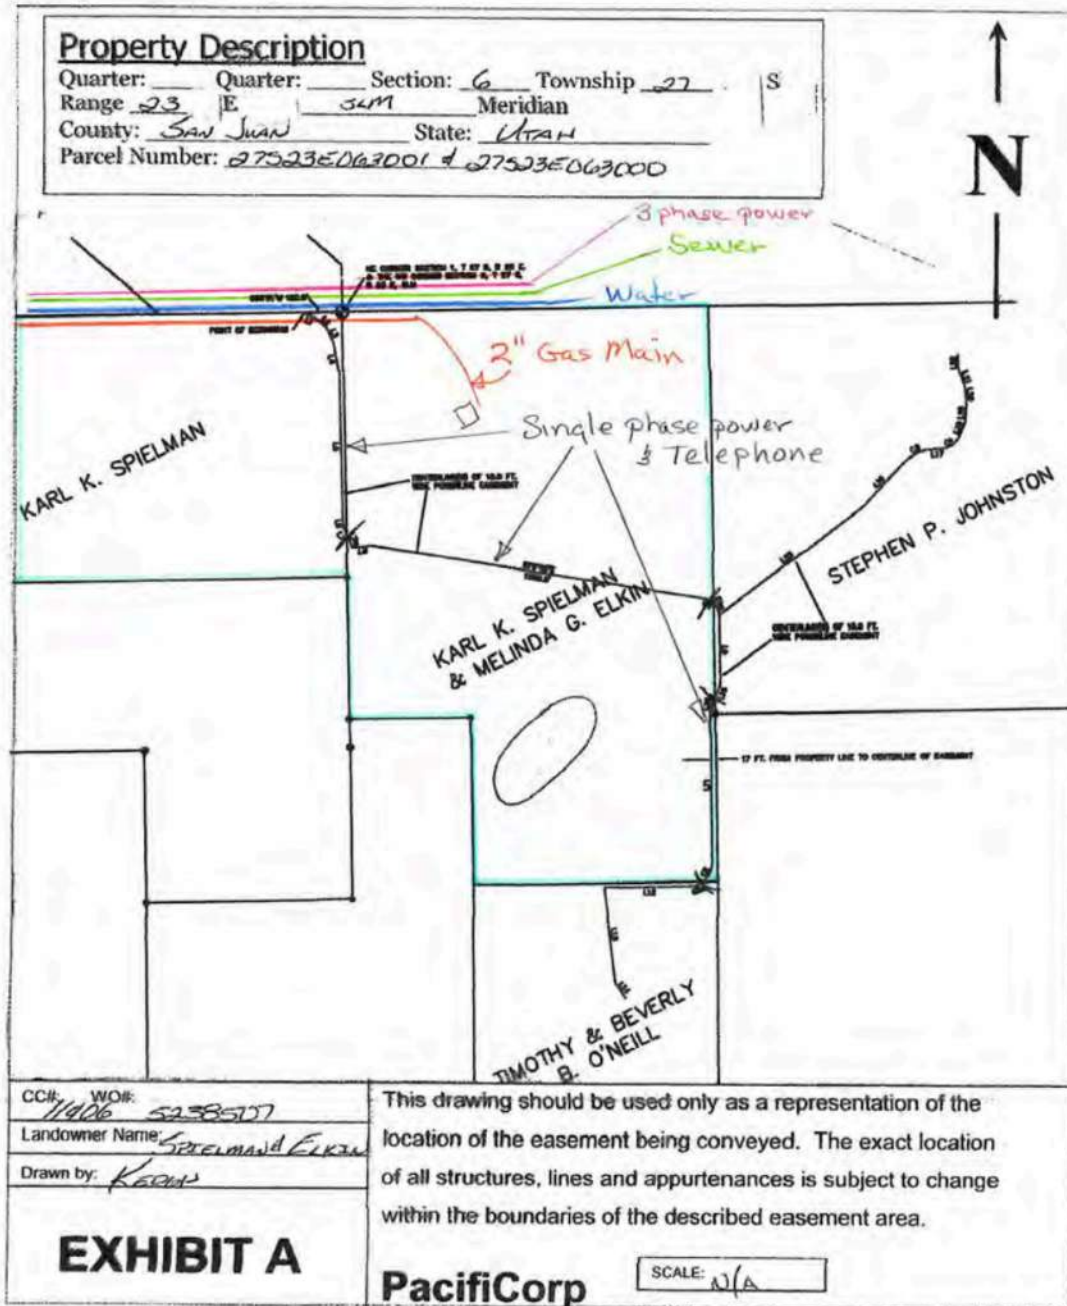 Property Description
Quarter: Quarter: Section: 6 Township 27 S
Range 23 E SLM Meridian
County: SAN JUAN State: UTAH
Parcel Number: 27S23E063001 & 27S23E063000
N
3 phase power
Sewer
Water
POINT OF BEGINNING
2" Gas Main
Single phase power
& Telephone
KARL K. SPIELMAN
CENTERLINES OF 10.0 FT.
WIDE POWERLINE EASEMENT
STEPHEN P. JOHNSTON
KARL K. SPIELMAN
& MELINDA G. ELKIN
CENTERLINES OF 10.0 FT.
WIDE POWERLINE EASEMENT
17 FT. FROM PROPERTY LINE TO CENTERLINE OF EASEMENT
TIMOTHY & BEVERLY
B. O'NEILL
CC#: 11406 WO#: 5238507
Landowner Name: SPIELMAN & ELKIN
Drawn by:
EXHIBIT A
This drawing should be used only as a representation of the
location of the easement being conveyed. The exact location
of all structures, lines and appurtenances is subject to change
within the boundaries of the described easement area.
PacifiCorp
SCALE: N/A